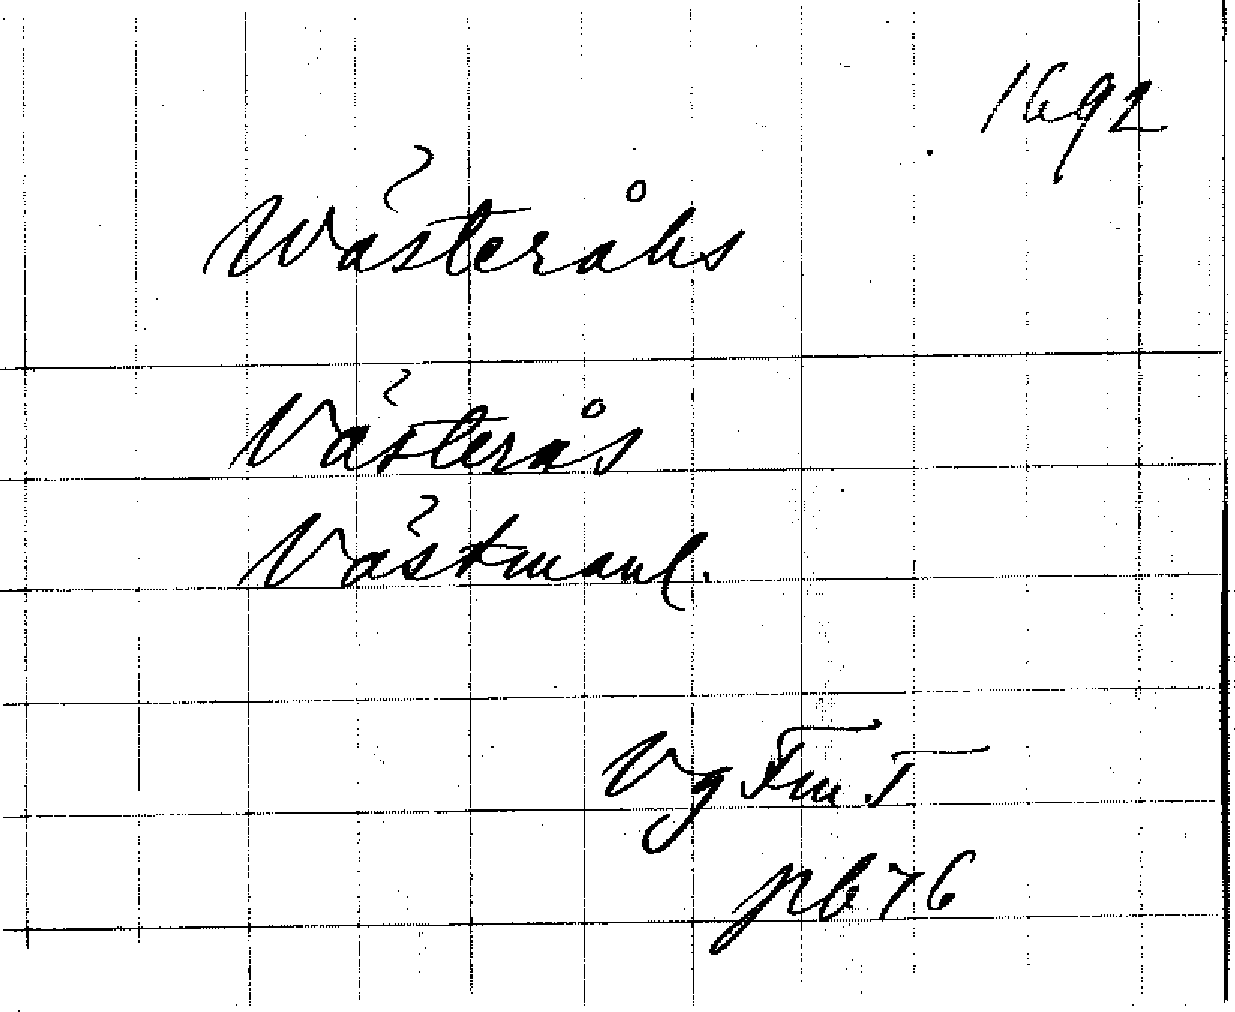 1692
Wästeråhs
Västerås
Västmanl.
Vg Fm T
pb 76